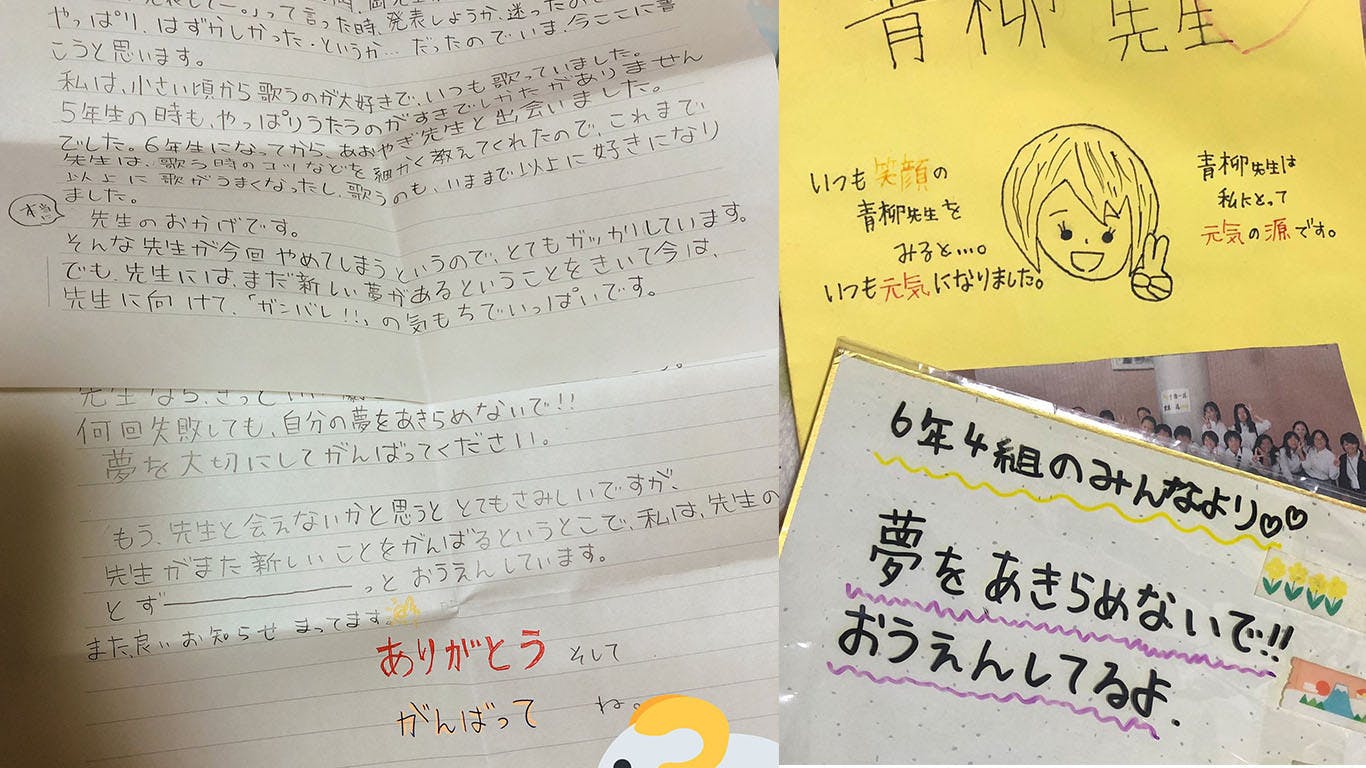 って言った時、発表しようか、迷ったの
やっぱり、はずかしかった・というか… だったのでいま、今ここに書
こうと思います。
私は、小さい頃から歌うのが大好きで、いつも歌っていました。
5年生の時も、やっぱりうたうのがすきでしかたがありません
でした。6年生になってから、あおやぎ先生と出会いました。
先生は、歌う時のコツなどを細かく教えてくれたので、これまで
以上に歌がうまくなったし、歌うのも、いままで以上に好きになり
ました。
本当に
先生のおかげです。
そんな先生が今回やめてしまうというので、とてもガッカリしています。
でも、先生には、まだ新しい夢があるということをきいて今は、
先生に向けて、「ガンバレ!!」の気もちでいっぱいです。
先生なら、きっと
何回失敗しても、自分の夢をあきらめないで!!
夢を大切にしてがんばってください。
もう、先生と会えないかと思うと とてもさみしいですが、
先生がまた新しいことをがんばるというとこで、私は、先生の
こと ず――――っと おうえんしています。
また、良いお知らせ まってます。
ありがとう そして
がんばって ね。
青柳 先生
いつも笑顔の
青柳先生を
みると…。
いつも元気になりました。
青柳先生は
私にとって
元気の源です。
6年4組のみんなより♡♡
夢をあきらめないで!!
おうえんしてるよ.